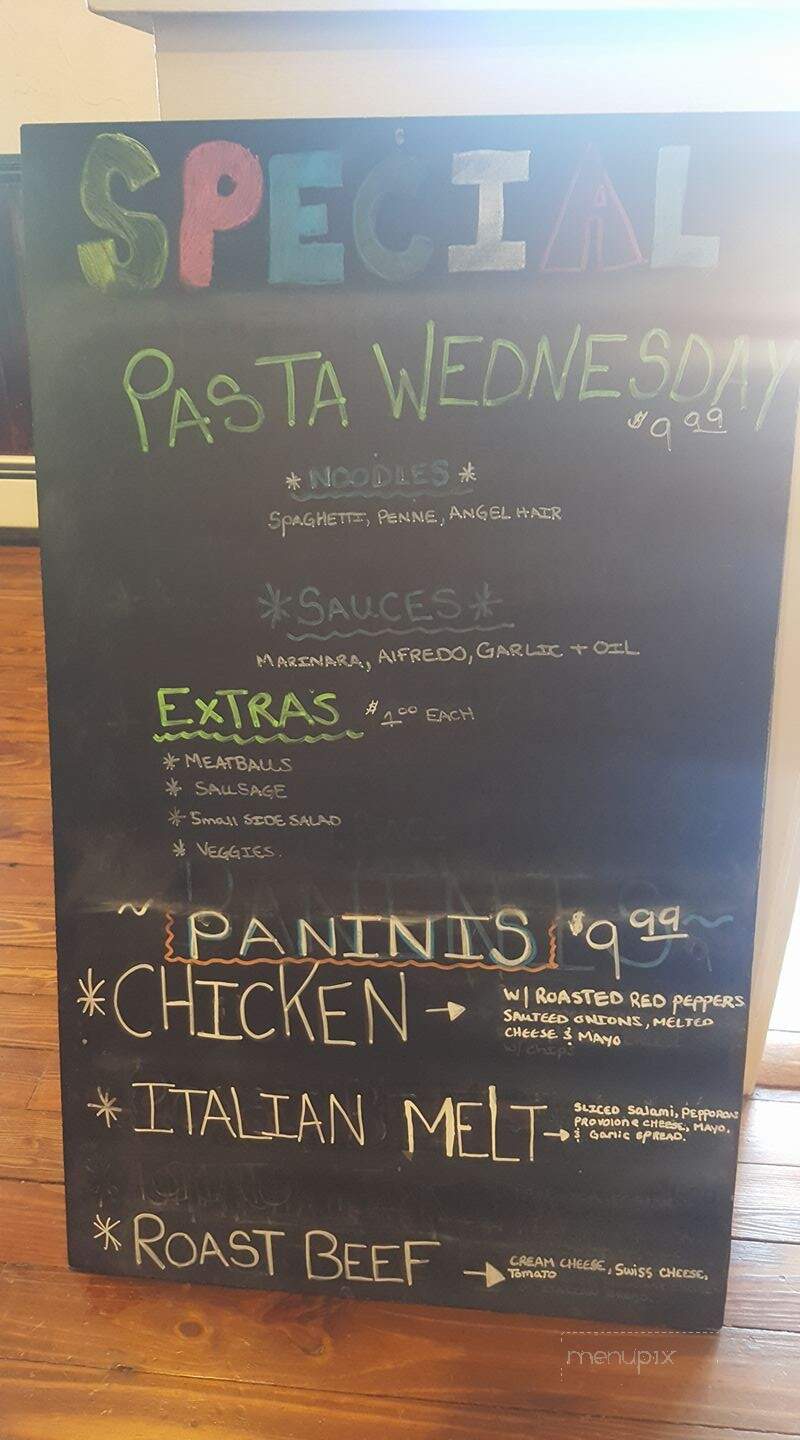 SPECIAL
PASTA WEDNESDAY
$9 99
*NOODLES*
SPAGHETTI, PENNE, ANGEL HAIR
*SAUCES*
MARINARA, AlFREDO, GARLIC + OIL
EXTRAS $1 00 EACH
* MEATBALLS
* SAUSAGE
* Small SIDE SALAD
* VEGGIES.
~ PANINIS $9 99 ~
* CHICKEN → W/ ROASTED RED PEPPERS
SAUTEED ONIONS, MELTED
CHEESE & MAYO
w/ chips
* ITALIAN MELT → SLICED Salami, PEPPORONI
PROVOLONE CHEESE, MAYO,
& Garlic SPREAD.
* ROAST BEEF → CREAM CHEESE, SWISS CHEESE,
TOMATO
menupix